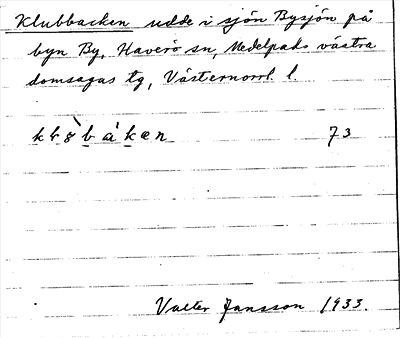 Klubbacken udde i sjön Bysjön på
byn By, Haverö sn, Medelpads västra
domsagas tg, Västernorrl. l
73
Valter Jansson 1933.